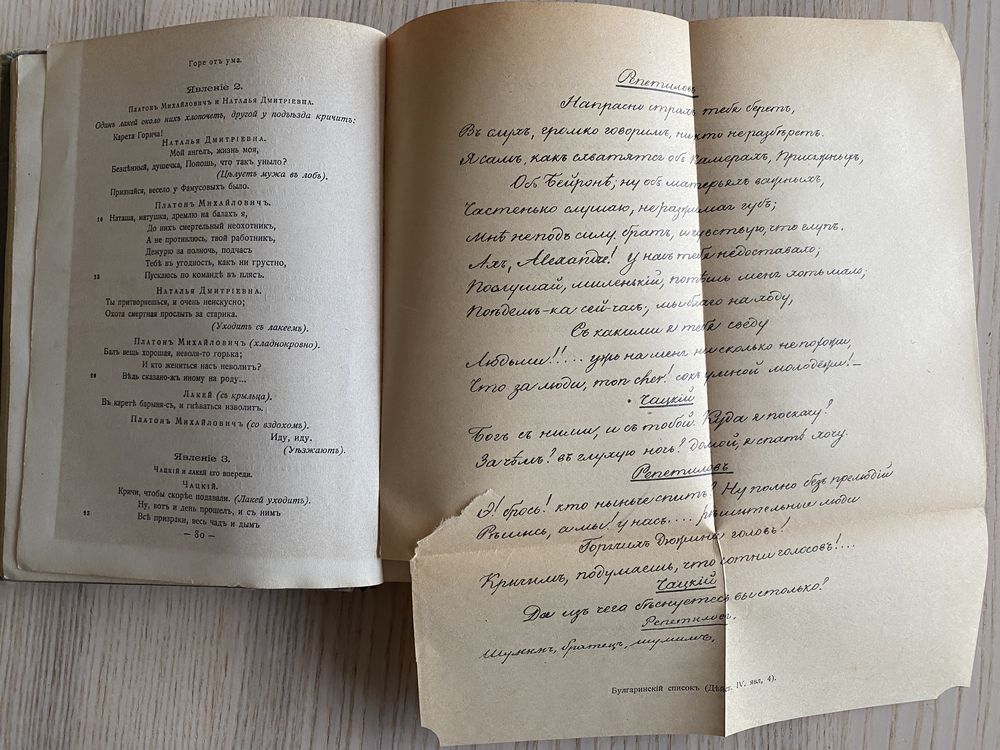 Горе отъ ума.
Явленіе 2.
Платонъ Михайловичъ и Наталья Дмитріевна.
Одинъ лакей около нихъ хлопочетъ, другой у подъѣзда кричитъ:
Карета Горича!
Наталья Дмитріевна.
Мой ангелъ, жизнь моя,
Безцѣнный, душечка, Попошь, что такъ уныло?
(Цѣлуетъ мужа въ лобъ).
Признайся, весело у Фамусовыхъ было.
Платонъ Михайловичъ.
10 Наташа, матушка, дремлю на балахъ я,
До нихъ смертельный неохотникъ,
А не противлюсь, твой работникъ,
Дежурю за полночь, подчасъ
Тебѣ въ угодность, какъ ни грустно,
15 Пускаюсь по командѣ въ плясъ.
Наталья Дмитріевна.
Ты притворяешься, и очень неискусно;
Охота смертная прослыть за старика.
(Уходитъ съ лакеемъ).
Платонъ Михайловичъ (хладнокровно).
Балъ вещь хорошая, неволя-то горька;
И кто жениться насъ неволитъ?
20 Вѣдь сказано-жъ иному на роду...
Лакей (съ крыльца).
Въ каретѣ барыня-съ, и гнѣваться изволитъ.
Платонъ Михайловичъ (со вздохомъ).
Иду, иду.
(Уѣзжаютъ).
Явленіе 3.
Чацкій и лакей его впереди.
Чацкій.
Кричи, чтобы скорѣе подавали. (Лакей уходитъ).
Ну, вотъ и день прошелъ, и съ нимъ
25 Всѣ призраки, весь чадъ и дымъ
— 80 —
Репетиловъ
Напрасно страхъ тебя беретъ,
Въ слухъ, громко говоримъ, никто не разбѣретъ.
Я самъ, какъ схватятся объ камерахъ, присяжныхъ,
Объ Бейронѣ, ну объ матерьяхъ важныхъ,
Частенько слушаю, не разжимая губъ;
Мнѣ не подъ силу, братъ, и чувствую, что глупъ.
Ахъ, Alexandre! у насъ тебя недоставало;
Послушай, миленькій, потѣшь меня хоть мало;
Поѣдемъ-ка сей-часъ; мы благо на ходу,
Съ какими я тебя сведу
Людьми!!... ужъ на меня нисколько не похожи,
Что за люди, mon cher! сокъ умной молодежи!—
Чацкій
Богъ съ ними, и съ тобой. Куда я поскачу?
Зачѣмъ? въ глухую ночь? Домой, я спать хочу.
Репетиловъ
Э! брось! кто нынче спитъ? Ну полно безъ прелюдій
Рѣшись, а мы! у насъ.... рѣшительные люди
Горячихъ дюжина головъ!
Кричимъ, подумаешь, что сотни голосовъ!...
Чацкій
Да изъ чего бѣснуетесь вы столько?
Репетиловъ.
Шумимъ, братецъ, шумимъ,
Булгаринскій списокъ (Дѣйст. IV, явл. 4).